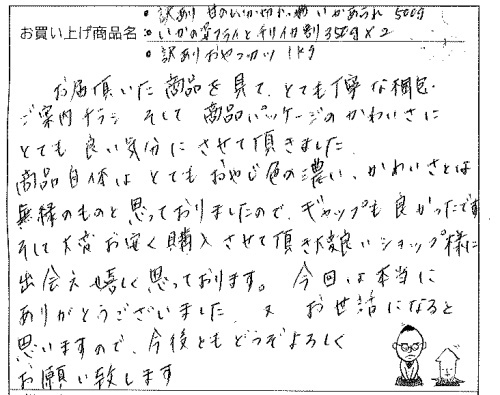 ・訳あり 甘のしいか切れっ端 いかあられ 500g
お買い上げ商品名・いかの姿フライとチリイカ割 350g×2
・訳ありおやつカツ 1kg
お届頂いた商品を見て、とても丁寧な梱包・
ご案内チラシ そして 商品パッケージのかわいさに
とても 良い気分に させて頂きました。
商品自体は とても おやじ色の濃い、かわいさとは
無縁のものと思っておりましたので、ギャップも良かったです
そして 大変 お安く購入させて頂き大変良いショップ様に
出会え 嬉しく思っております。 今回は本当に
ありがとうございました。又 お世話になると
思いますので、今後ともどうぞよろしく
お願い致します